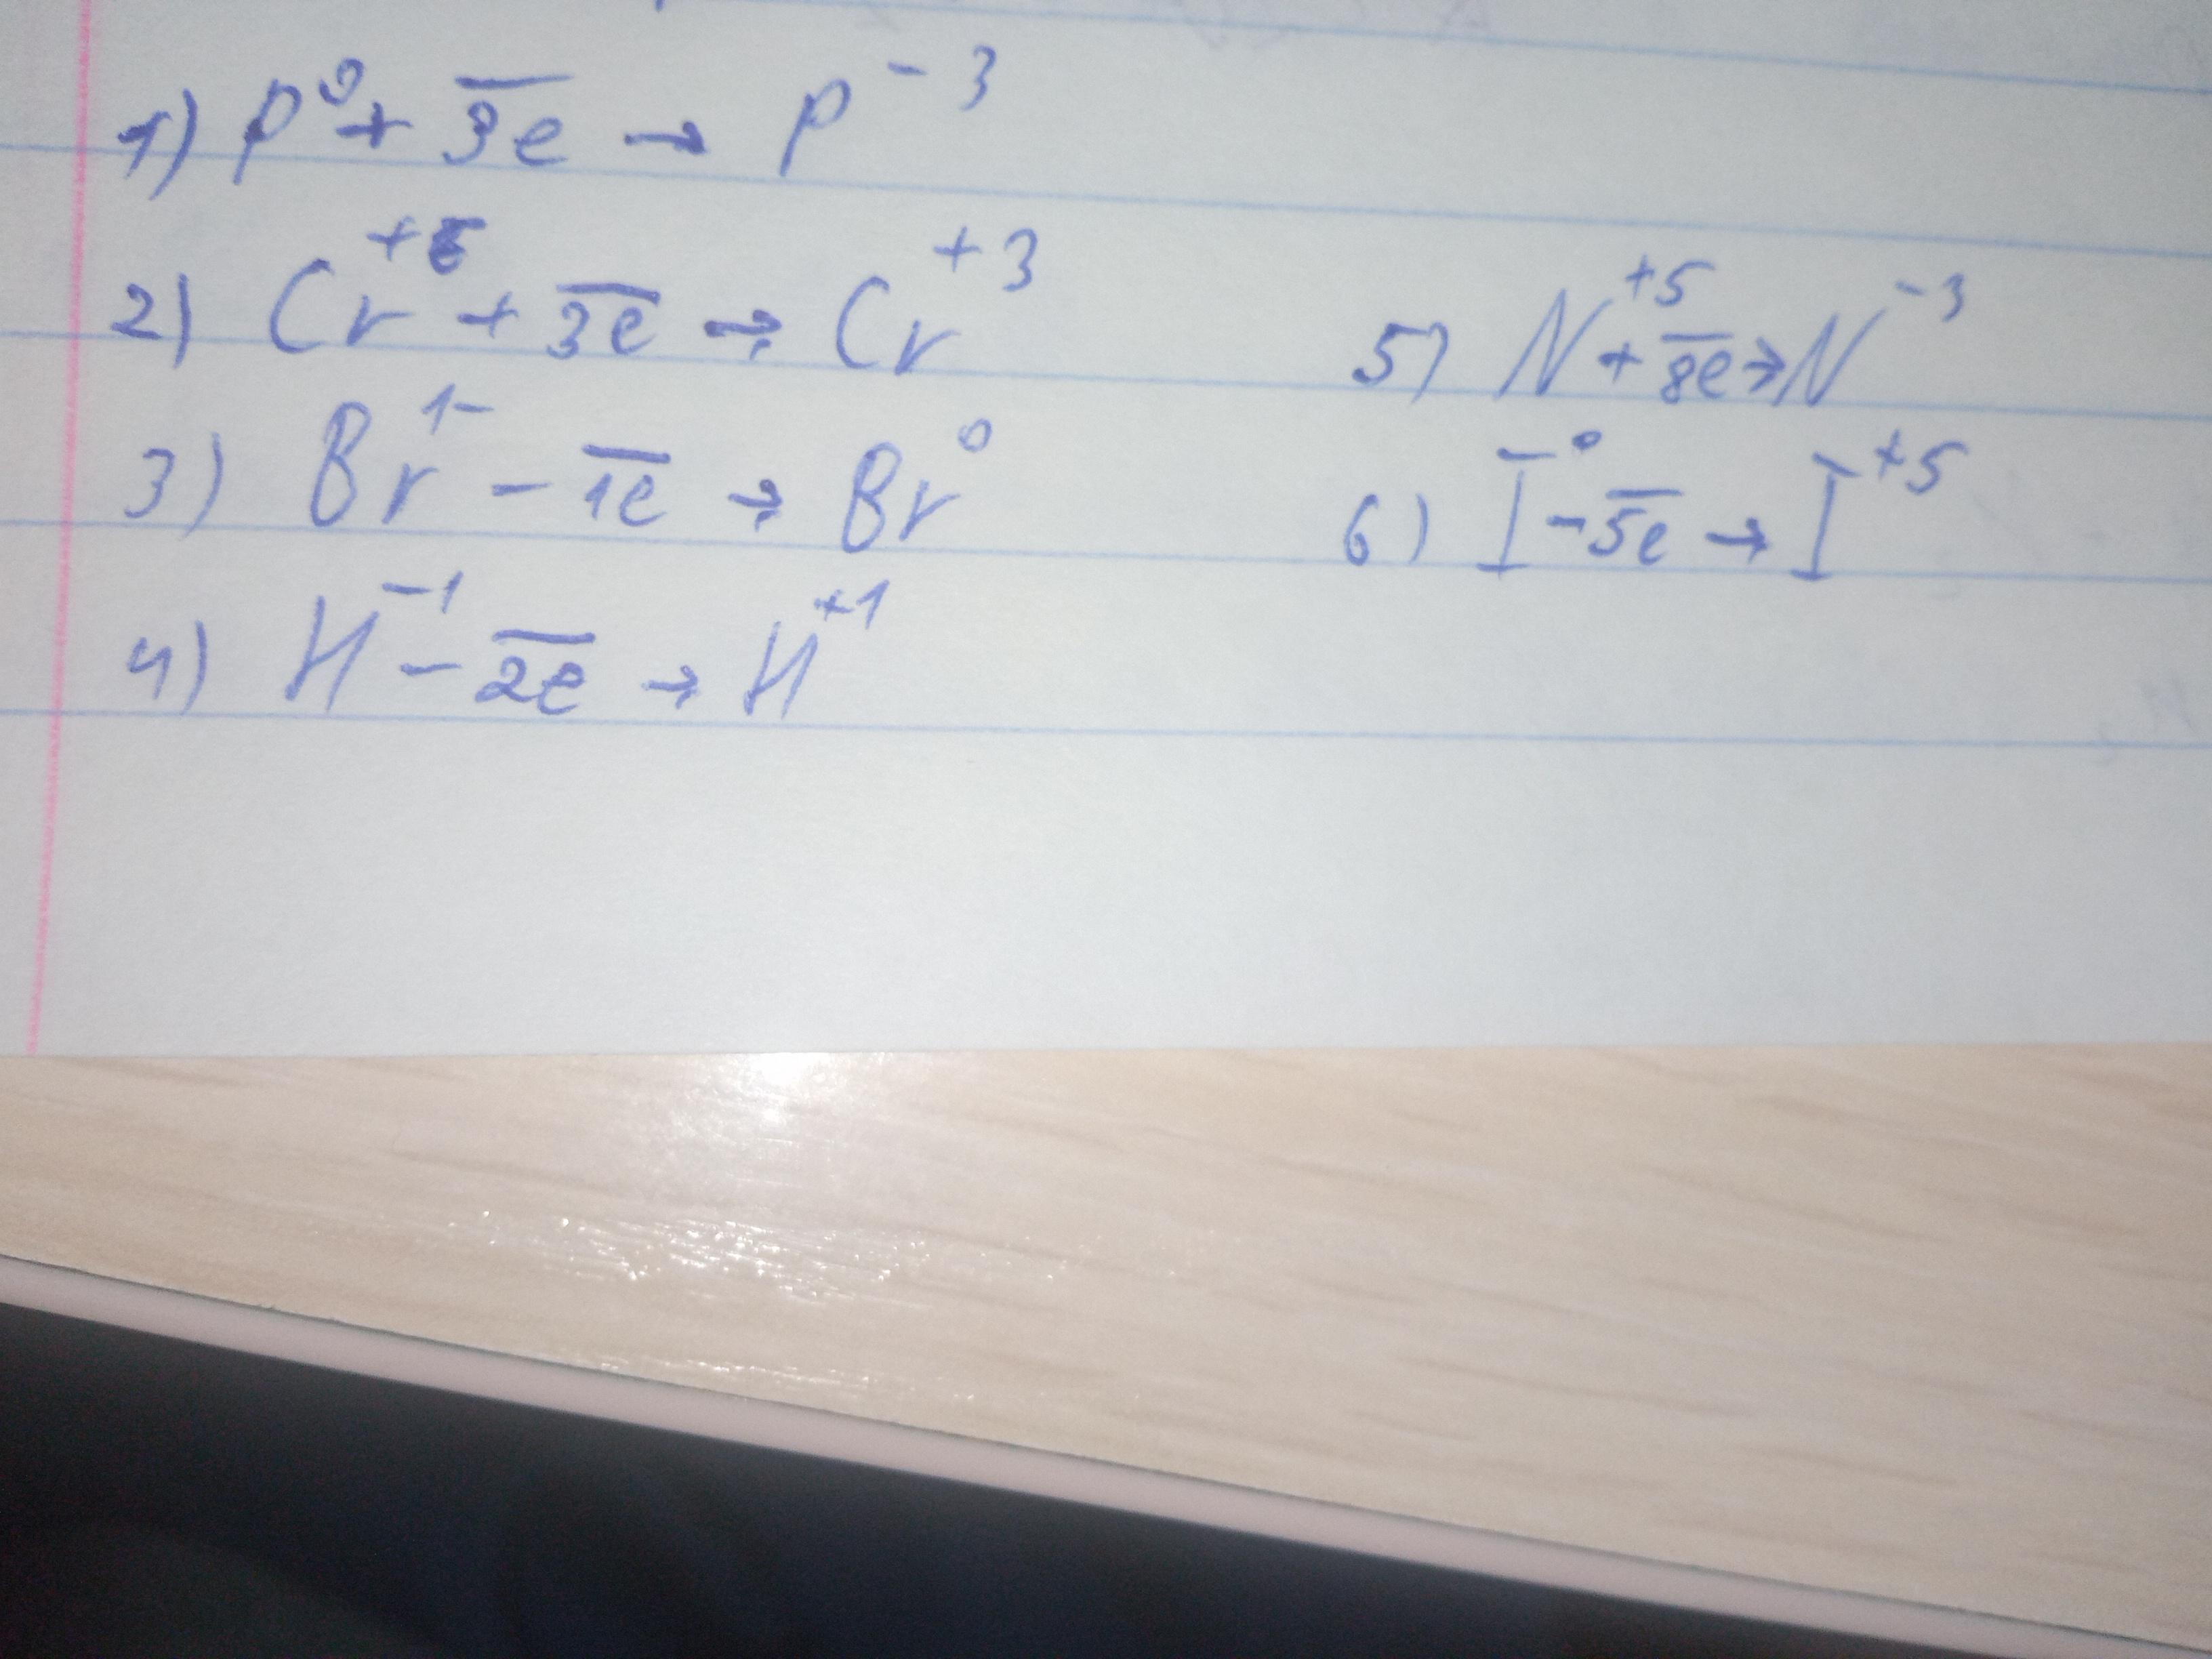 1) P⁰ + 3e̅ → P⁻³
2) Cr⁺⁶ + 3e̅ → Cr⁺³
3) Br¹⁻ - 1e̅ → Br⁰
4) H⁻¹ - 2e̅ → H⁺¹
5) N⁺⁵ + 8e̅ → N⁻³
6) I⁰ - 5e̅ → I⁺⁵